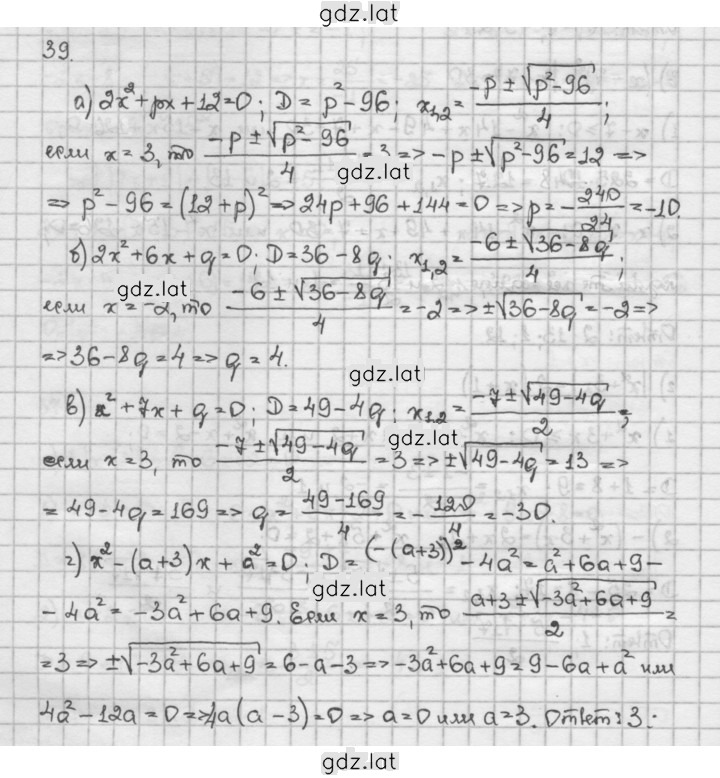 gdz.lat
39.
а) 2x² + px + 12 = 0; D = p² - 96; x₁,₂ = (-p ± √(p² - 96))/4;
если x = 3, то (-p ± √(p² - 96))/4 = ³ => -p ± √(p² - 96) = 12 =>
gdz.lat
=> p² - 96 = (12 + p)² => 24p + 96 + 144 = 0 => p = -240/24 = -10.
б) 2x² + 6x + q = 0; D = 36 - 8q; x₁,₂ = (-6 ± √(36 - 8q))/4;
gdz.lat
если x = -2, то (-6 ± √(36 - 8q))/4 = -2 => ±√(36 - 8q) = -2 =>
=> 36 - 8q = 4 => q = 4.
gdz.lat
в) x² + 7x + q = 0; D = 49 - 4q; x₁,₂ = (-7 ± √(49 - 4q))/2;
gdz.lat
если x = 3, то (-7 ± √(49 - 4q))/2 = 3 => ±√(49 - 4q) = 13 =>
= 49 - 4q = 169 => q = (49 - 169)/4 = -120/4 = -30.
г) x² - (a + 3)x + a² = 0; D = (-(a + 3))² - 4a² = a² + 6a + 9 -
gdz.lat
- 4a² = -3a² + 6a + 9. Если x = 3, то (a + 3 ± √(-3a² + 6a + 9))/2 =
= 3 => ±√(-3a² + 6a + 9) = 6 - a - 3 => -3a² + 6a + 9 = 9 - 6a + a² или
gdz.lat
4a² - 12a = 0 => 4a(a - 3) = 0 => a = 0 или a = 3. Ответ: 3;
gdz.lat